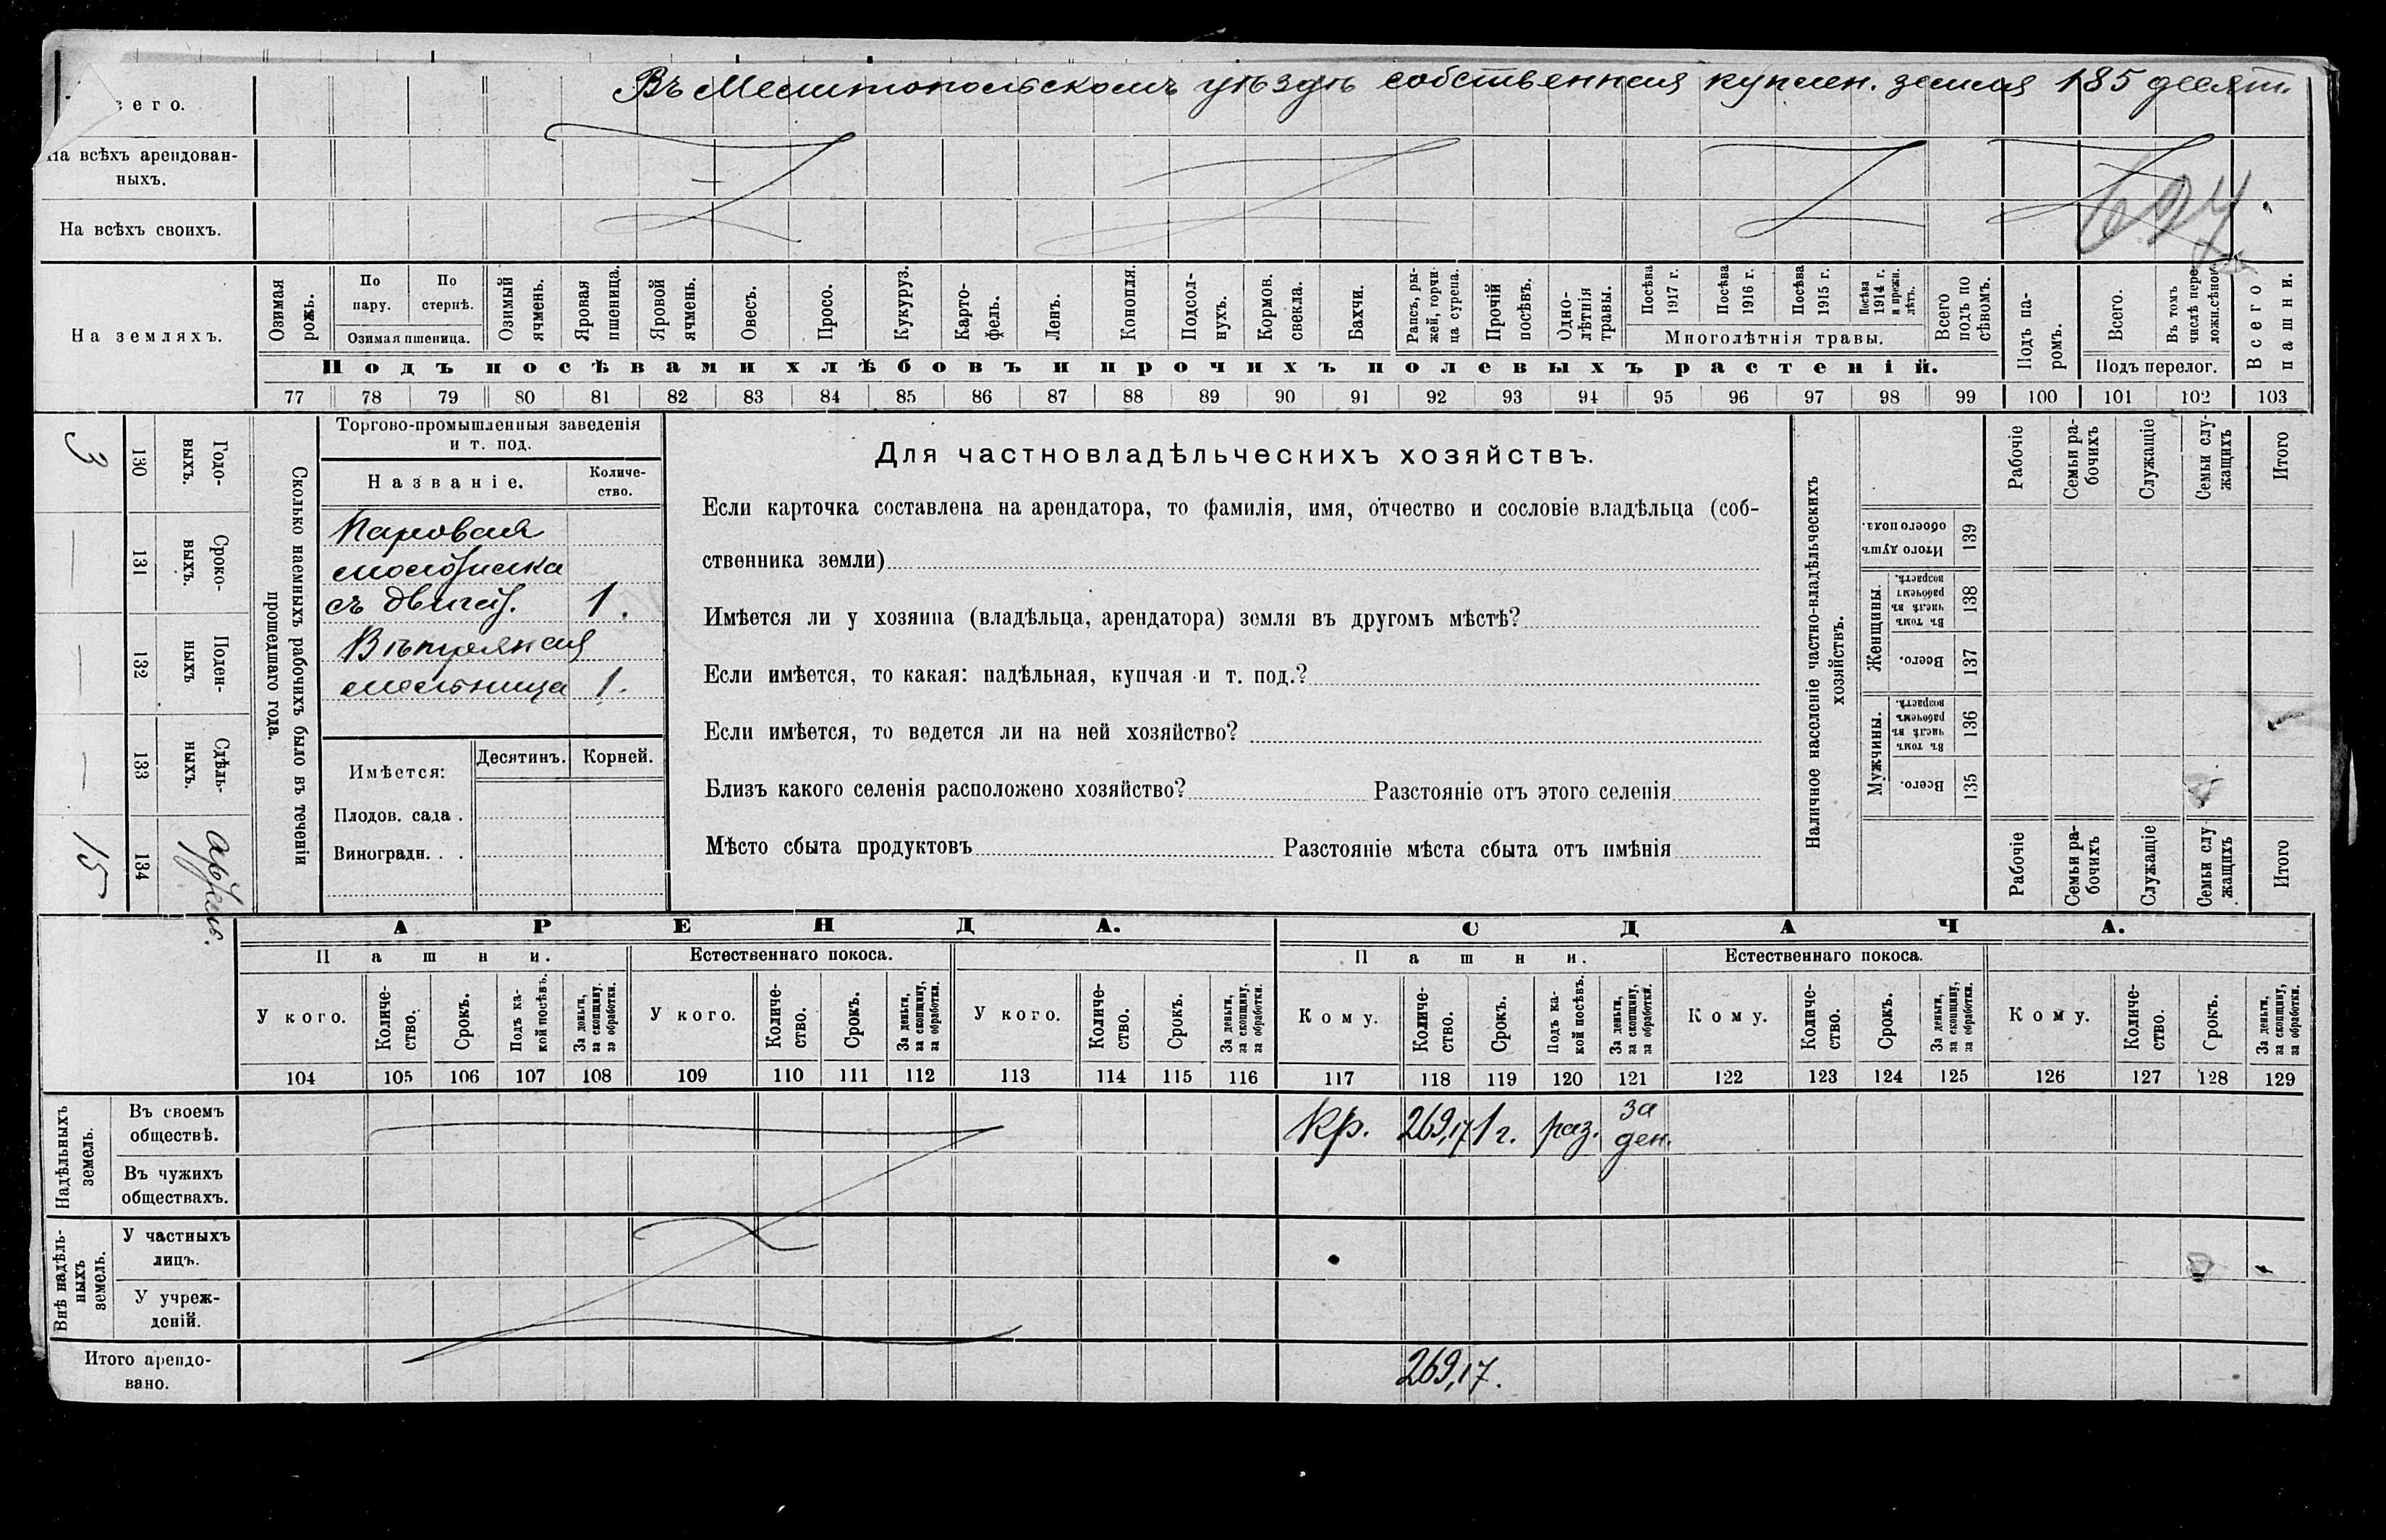 Въ Мелитопольскомъ уѣздѣ собственная куплен. земля 185 десят.
его.
На всѣхъ арендован-
ныхъ.
На всѣхъ своихъ.
На земляхъ.
Озимая рожь.
По пару.
По стернѣ.
Озимая пшеница.
Озимый ячмень.
Яровая пшеница.
Яровой ячмень.
Овесъ.
Просо.
Кукуруз.
Карто-
фель.
Ленъ.
Конопля.
Подсол-
нухъ.
Кормов. свекла.
Бахчи.
Рапсъ, ры-
жей, горчи
ца сурепа.
Прочій посѣвъ.
Одно-
лѣтнія
травы.
Посѣва 1917 г.
Посѣва 1916 г.
Посѣва 1915 г.
Посѣва 1914 г. и прежн. лѣтъ.
Многолѣтнія травы.
Всего подъ по сѣвомъ.
Подъ па-
ромъ.
Всего.
Въ томъ числѣ пере ложн.сѣнок
Подъ перелог.
Всего пашни.
Подъ посѣвами хлѣбовъ и прочихъ полевыхъ растеній.
77 78 79 80 81 82 83 84 85 86 87 88 89 90 91 92 93 94 95 96 97 98 99 100 101 102 103
3
130
Годо-
выхъ.
131
Сроко-
выхъ.
132
Поден-
ныхъ
133
Сдѣль-
ныхъ.
15
134
Сколько наемныхъ рабочихъ было въ теченіи
прошедшаго года.
Торгово-промышленныя заведенія
и т. под.
Названіе.
Количе-
ство.
Паровая
молотилка
съ двигат. 1.
Вѣтряная
мельница 1.
Имѣется:
Десятинъ.
Корней.
Плодов. сада.
Виноградн. . .
Для частновладѣльческихъ хозяйствъ.
Если карточка составлена на арендатора, то фамилія, имя, отчество и сословіе владѣльца (соб-
ственника земли)
Имѣется ли у хозяина (владѣльца, арендатора) земля въ другомъ мѣстѣ?
Если имѣется, то какая: надѣльная, купчая и т. под.?
Если имѣется, то ведется ли на ней хозяйство?
Близъ какого селенія расположено хозяйство? Разстояніе отъ этого селенія
Мѣсто сбыта продуктовъ Разстояніе мѣста сбыта отъ имѣнія
Наличное населеніе частно-владѣльческихъ
хозяйствъ.
Рабочіе
Семьи ра-
бочихъ
Служащіе
Семьи слу-
жащихъ
Итого
Итого душъ
обоего пола.
139
Женщины.
Въ томъ числѣ въ рабочемъ возрастѣ.
138
Всего.
137
Мужчины.
Въ томъ числѣ въ рабочемъ возрастѣ.
136
Всего.
135
Рабочіе
Семьи ра-
бочихъ
Служащіе
Семьи слу
жащихъ
Итого
АРЕНДА.
СДАЧА.
Пашни.
Естественнаго покоса.
Пашни.
Естественнаго покоса.
У кого.
Количе-
ство.
Срокъ.
Подъ ка-
кой посѣвъ.
За деньги, за скопщину, за обработки.
У кого.
Количе-
ство.
Срокъ.
За деньги, за скопщину, за обработки.
У кого.
Количе-
ство.
Срокъ.
За деньги, за скопщину, за обработки.
Кому.
Количе-
ство.
Срокъ.
Подъ ка-
кой посѣвъ.
За деньги, за скопщину, за обработки.
Кому.
Количе-
ство.
Срокъ.
За деньги, за скопщину, за обработки.
Кому.
Количе-
ство.
Срокъ.
За деньги, за скопщину, за обработки.
104 105 106 107 108 109 110 111 112 113 114 115 116 117 118 119 120 121 122 123 124 125 126 127 128 129
Надѣльныхъ
земель.
Въ своемъ
обществѣ.
Кр. 269,17 1 г. раз. за ден.
Въ чужихъ
обществахъ.
Внѣ надѣль-
ныхъ
земель.
У частныхъ
лицъ.
У учреж-
деній.
Итого арендо-
вано.
269,17.